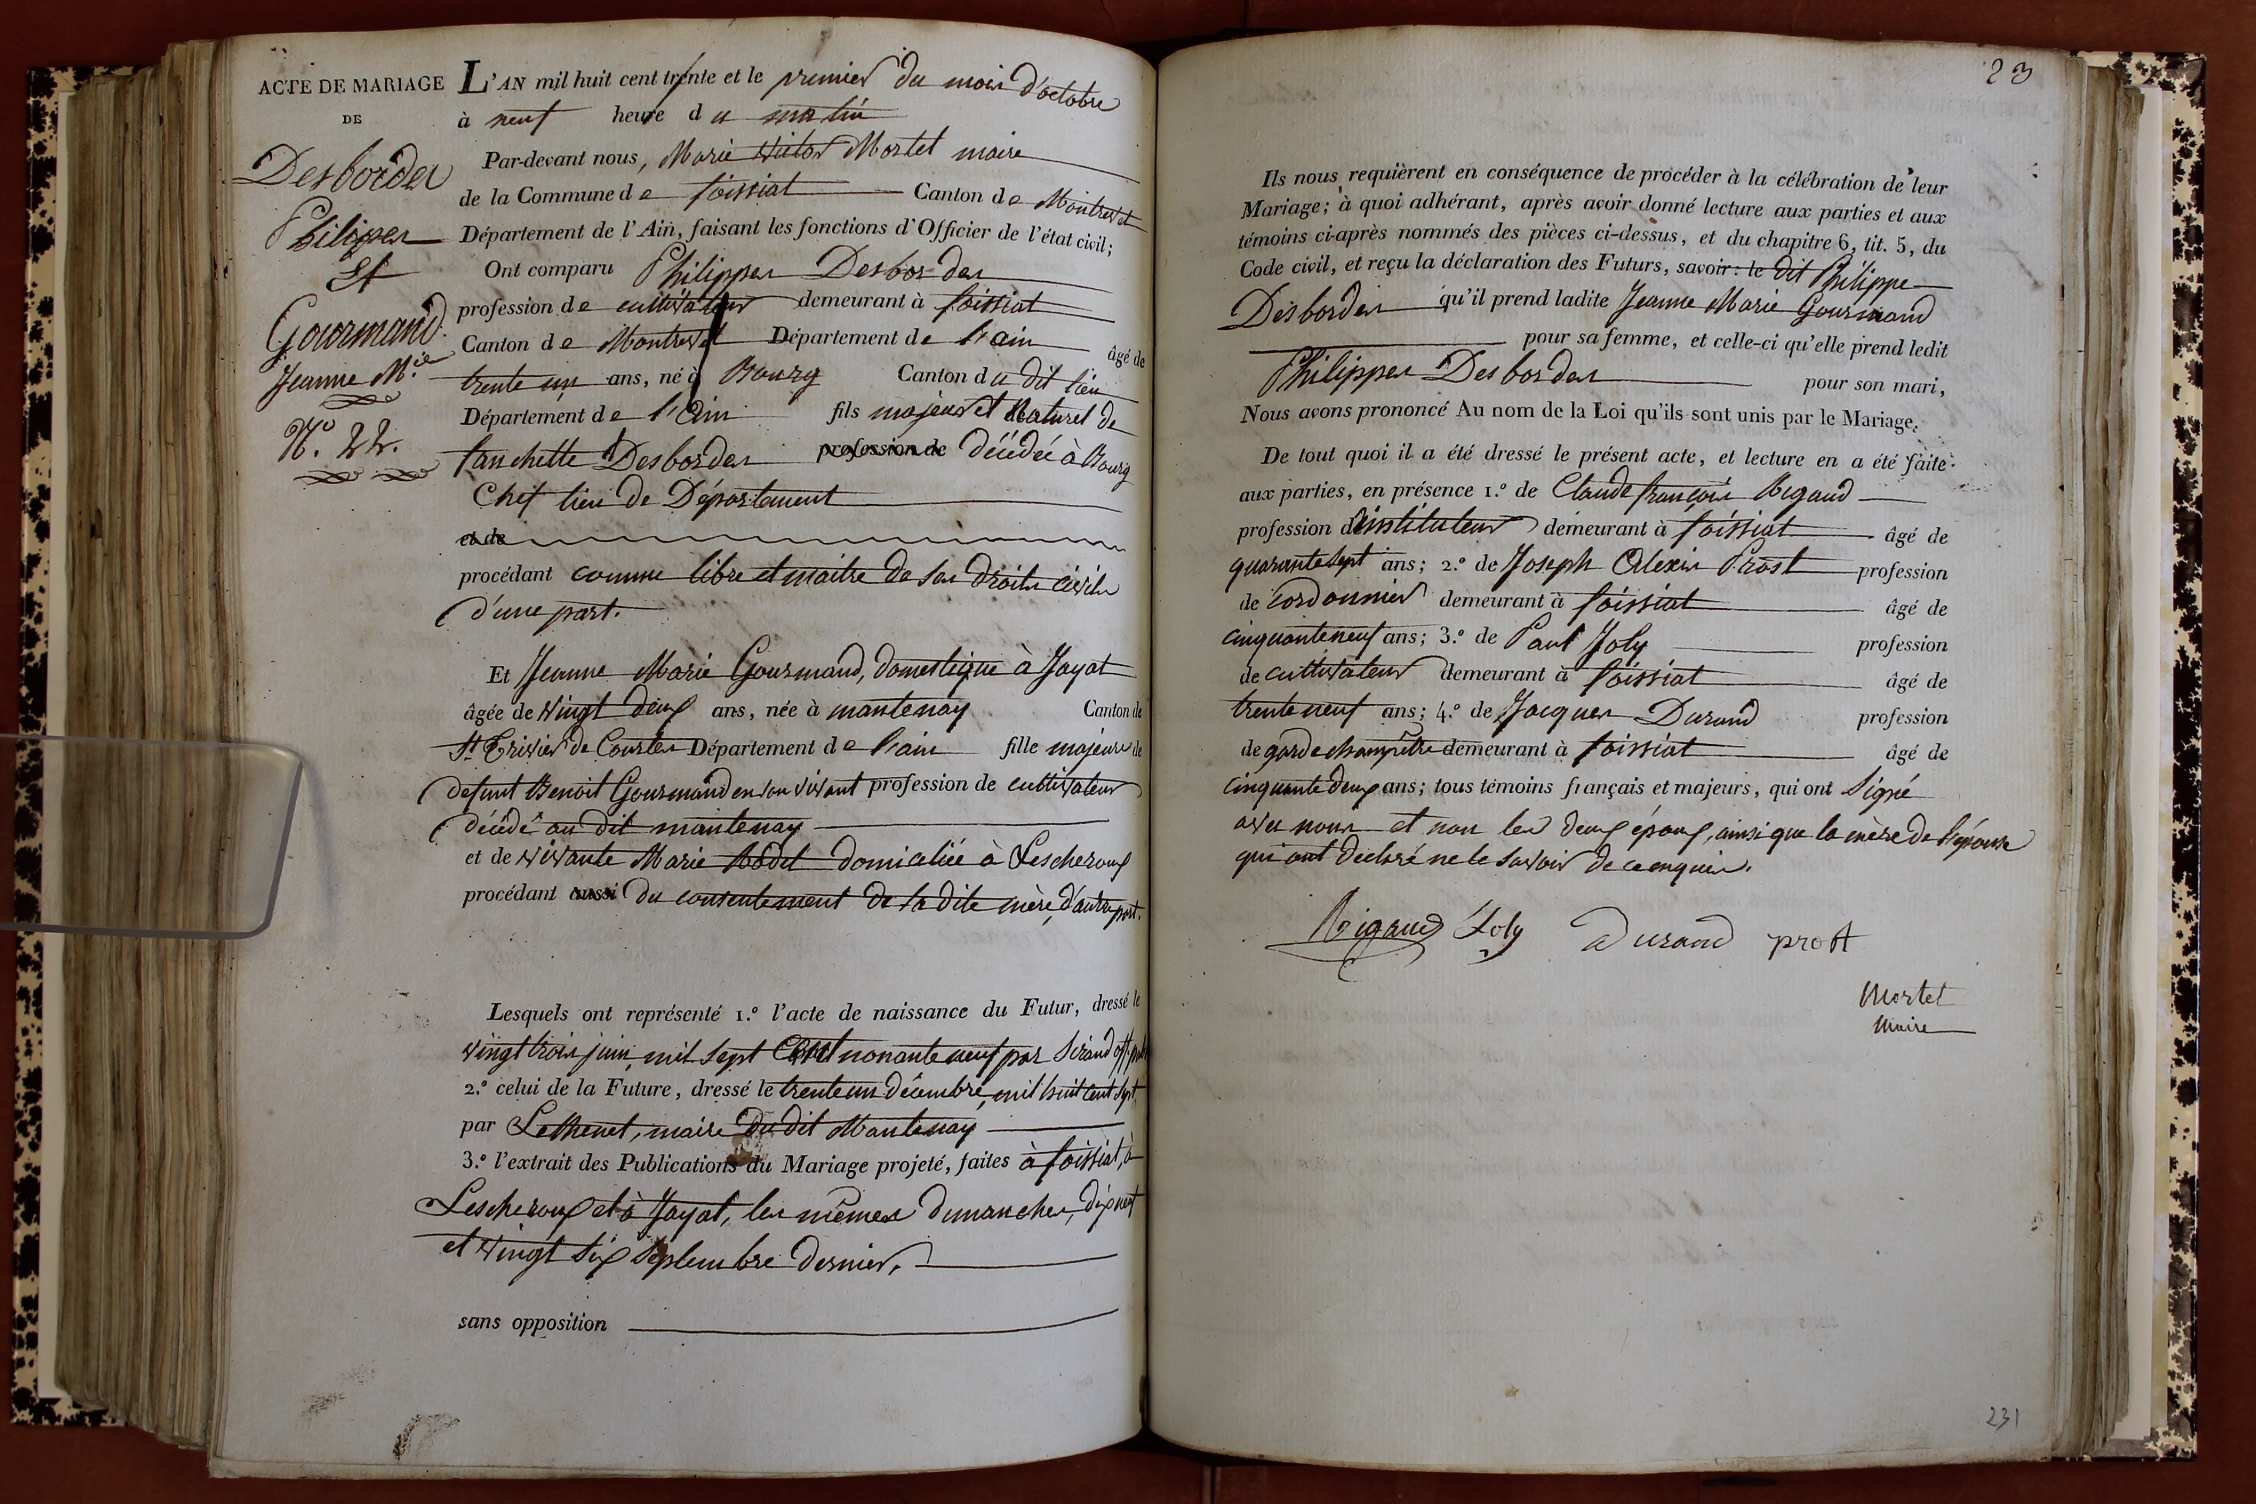 ACTE DE MARIAGE
DE
Desbordes
Philippes
Et
Gourmand
Jeanne M.ie
N.° 22.
L'AN mil huit cent trente et le premier du mois d'octobre
à neuf heure du matin
Par-devant nous, Marie Victor Mortel maire
de la Commune de foissiat Canton de Montrevel
Département de l'Ain, faisant les fonctions d'Officier de l'état civil;
Ont comparu Philippes Desbordes
profession de cultivateur demeurant à foissiat
Canton de Montrevel Département de l'ain âgé de
trente un ans, né à Bourg Canton du dit lieu
Département de l'Ain fils majeur et Naturel de
fanchette Desbordes profession de décédée à Bourg
Chef lieu de Département
et de
procédant comme libre et maitre de ses droits civils
d'une part.
Et Jeanne Marie Gourmand, domestique à Jayat
âgée de vingt deux ans, née à mantenay Canton de
St. Trivier de Courtes Département de l'ain fille majeure de
defunt Benoit Gourmand en son vivant profession de cultivateur
décédé au dit mantenay
et de vivante Marie domiciliée à Lescheroux
procédant aussi du consentement de sa dite mère, d'autre part.
Lesquels ont représenté 1.° l'acte de naissance du Futur, dressé le
vingt trois juin, mil sept Cent nonante neuf par Sirand off. pub.
2.° celui de la Future, dressé le trente un décembre, mil huit cent sept,
par maire du dit Mantenay
3.° l'extrait des Publications du Mariage projeté, faites à foissiat, à
Lescheroux et à Jayat, les mêmes dimanches, dix neuf
et vingt six septembre dernier,
sans opposition
23
Ils nous requièrent en conséquence de procéder à la célébration de leur
Mariage; à quoi adhérant, après avoir donné lecture aux parties et aux
témoins ci-après nommés des pièces ci-dessus, et du chapitre 6, tit. 5, du
Code civil, et reçu la déclaration des Futurs, savoir: le dit Philippe
Desbordes qu'il prend ladite Jeanne Marie Gourmand
pour sa femme, et celle-ci qu'elle prend ledit
Philippes Desbordes pour son mari,
Nous avons prononcé Au nom de la Loi qu'ils sont unis par le Mariage.
De tout quoi il a été dressé le présent acte, et lecture en a été faite
aux parties, en présence 1.° de Claude françois Rigaud
profession d'instituteur demeurant à foissiat âgé de
quarante sept ans; 2.° de Joseph Alexis Prost profession
de cordonnier demeurant à foissiat âgé de
cinquante neuf ans; 3.° de Paul Joly profession
de cultivateur demeurant à foissiat âgé de
trente neuf ans; 4.° de Jacques Durand profession
de garde champêtre demeurant à foissiat âgé de
cinquante deux ans; tous témoins français et majeurs, qui ont Signé
avec nous et non les deux époux, ainsi que la mère de l'épouse
qui ont déclaré ne le savoir de ce enquis.
Rigaud Joly Durand prost
Mortel
Maire
231